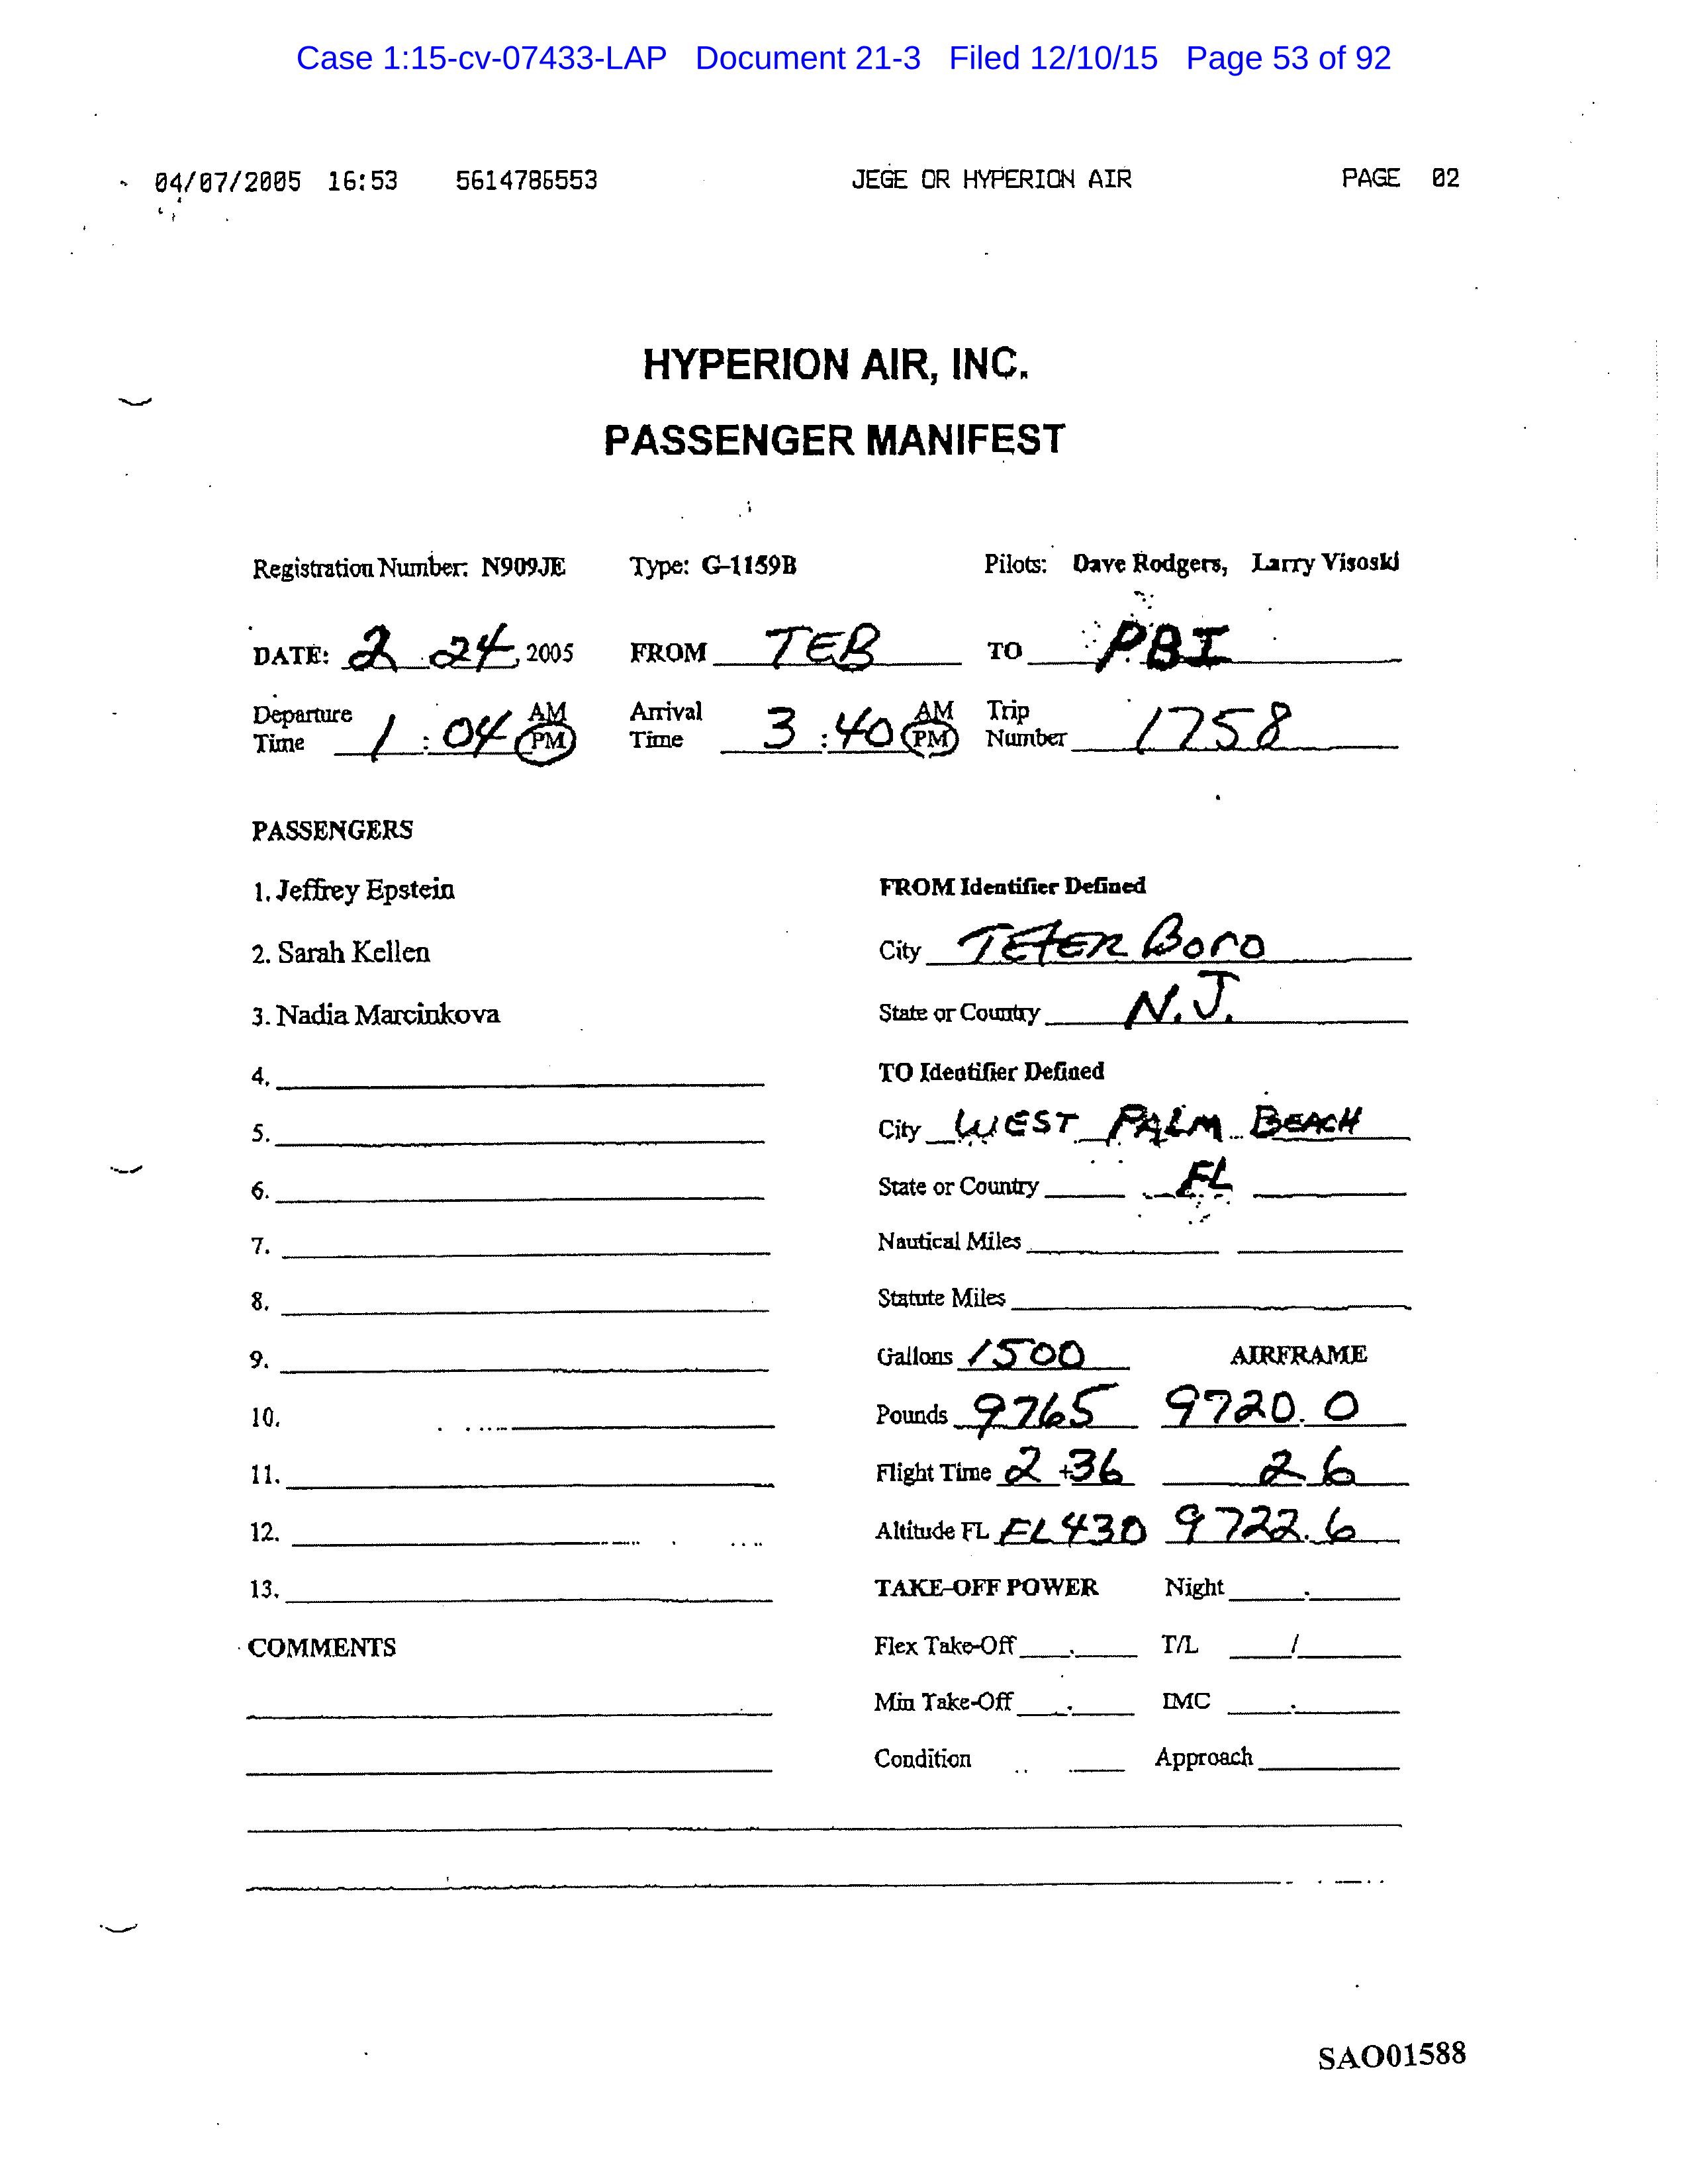 Case 1:15-cv-07433-LAP Document 21-3 Filed 12/10/15 Page 53 of 92
04/07/2005 16:53 5614786553 JEGE OR HYPERION AIR PAGE 02
HYPERION AIR, INC.
PASSENGER MANIFEST
Registration Number: N909JE Type: G-1159B Pilots: Dave Rodgers, Larry Visoski
DATE: 2 24, 2005 FROM TEB TO PBI
Departure Time 1:04 AM PM Arrival Time 3:40 AM PM Trip Number 1758
PASSENGERS
1. Jeffrey Epstein FROM Identifier Defined
2. Sarah Kellen City TETER BORO
3. Nadia Marcinkova State or Country N.J.
4. TO Identifier Defined
5. City WEST PALM BEACH
6. State or Country FL
7. Nautical Miles
8. Statute Miles
9. Gallons 1500 AIRFRAME
10. Pounds 9765 9720.0
11. Flight Time 2+36 2.6
12. Altitude FL FL430 9722.6
13. TAKE-OFF POWER Night .
COMMENTS Flex Take-Off . T/L /
Min Take-Off . IMC .
Condition Approach
SAO01588